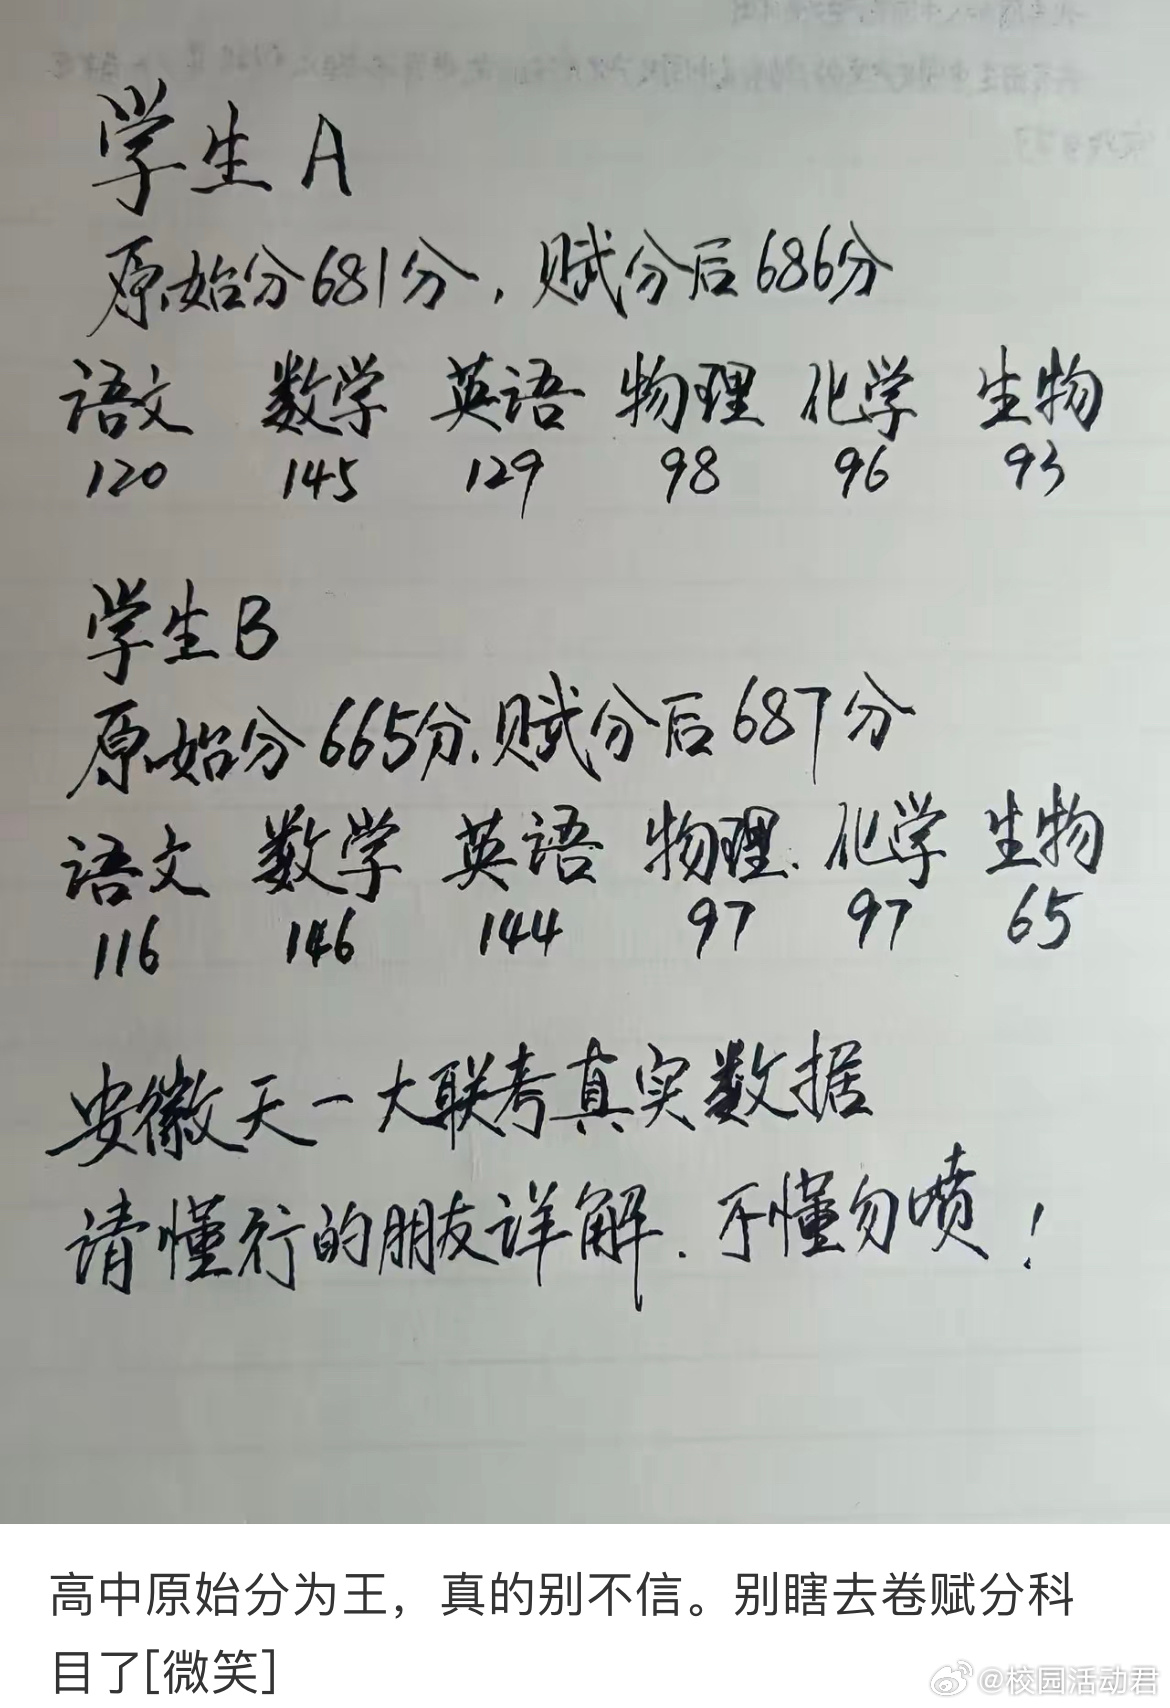 学生A
原始分681分，赋分后686分
语文 数学 英语 物理 化学 生物
120 145 129 98 96 93
学生B
原始分665分.赋分后687分
语文 数学 英语 物理. 化学 生物
116 146 144 97 97 65
安徽天一大联考真实数据
请懂行的朋友详解.不懂勿喷！
高中原始分为王，真的别不信。别瞎去卷赋分科
目了[微笑]
@校园活动君